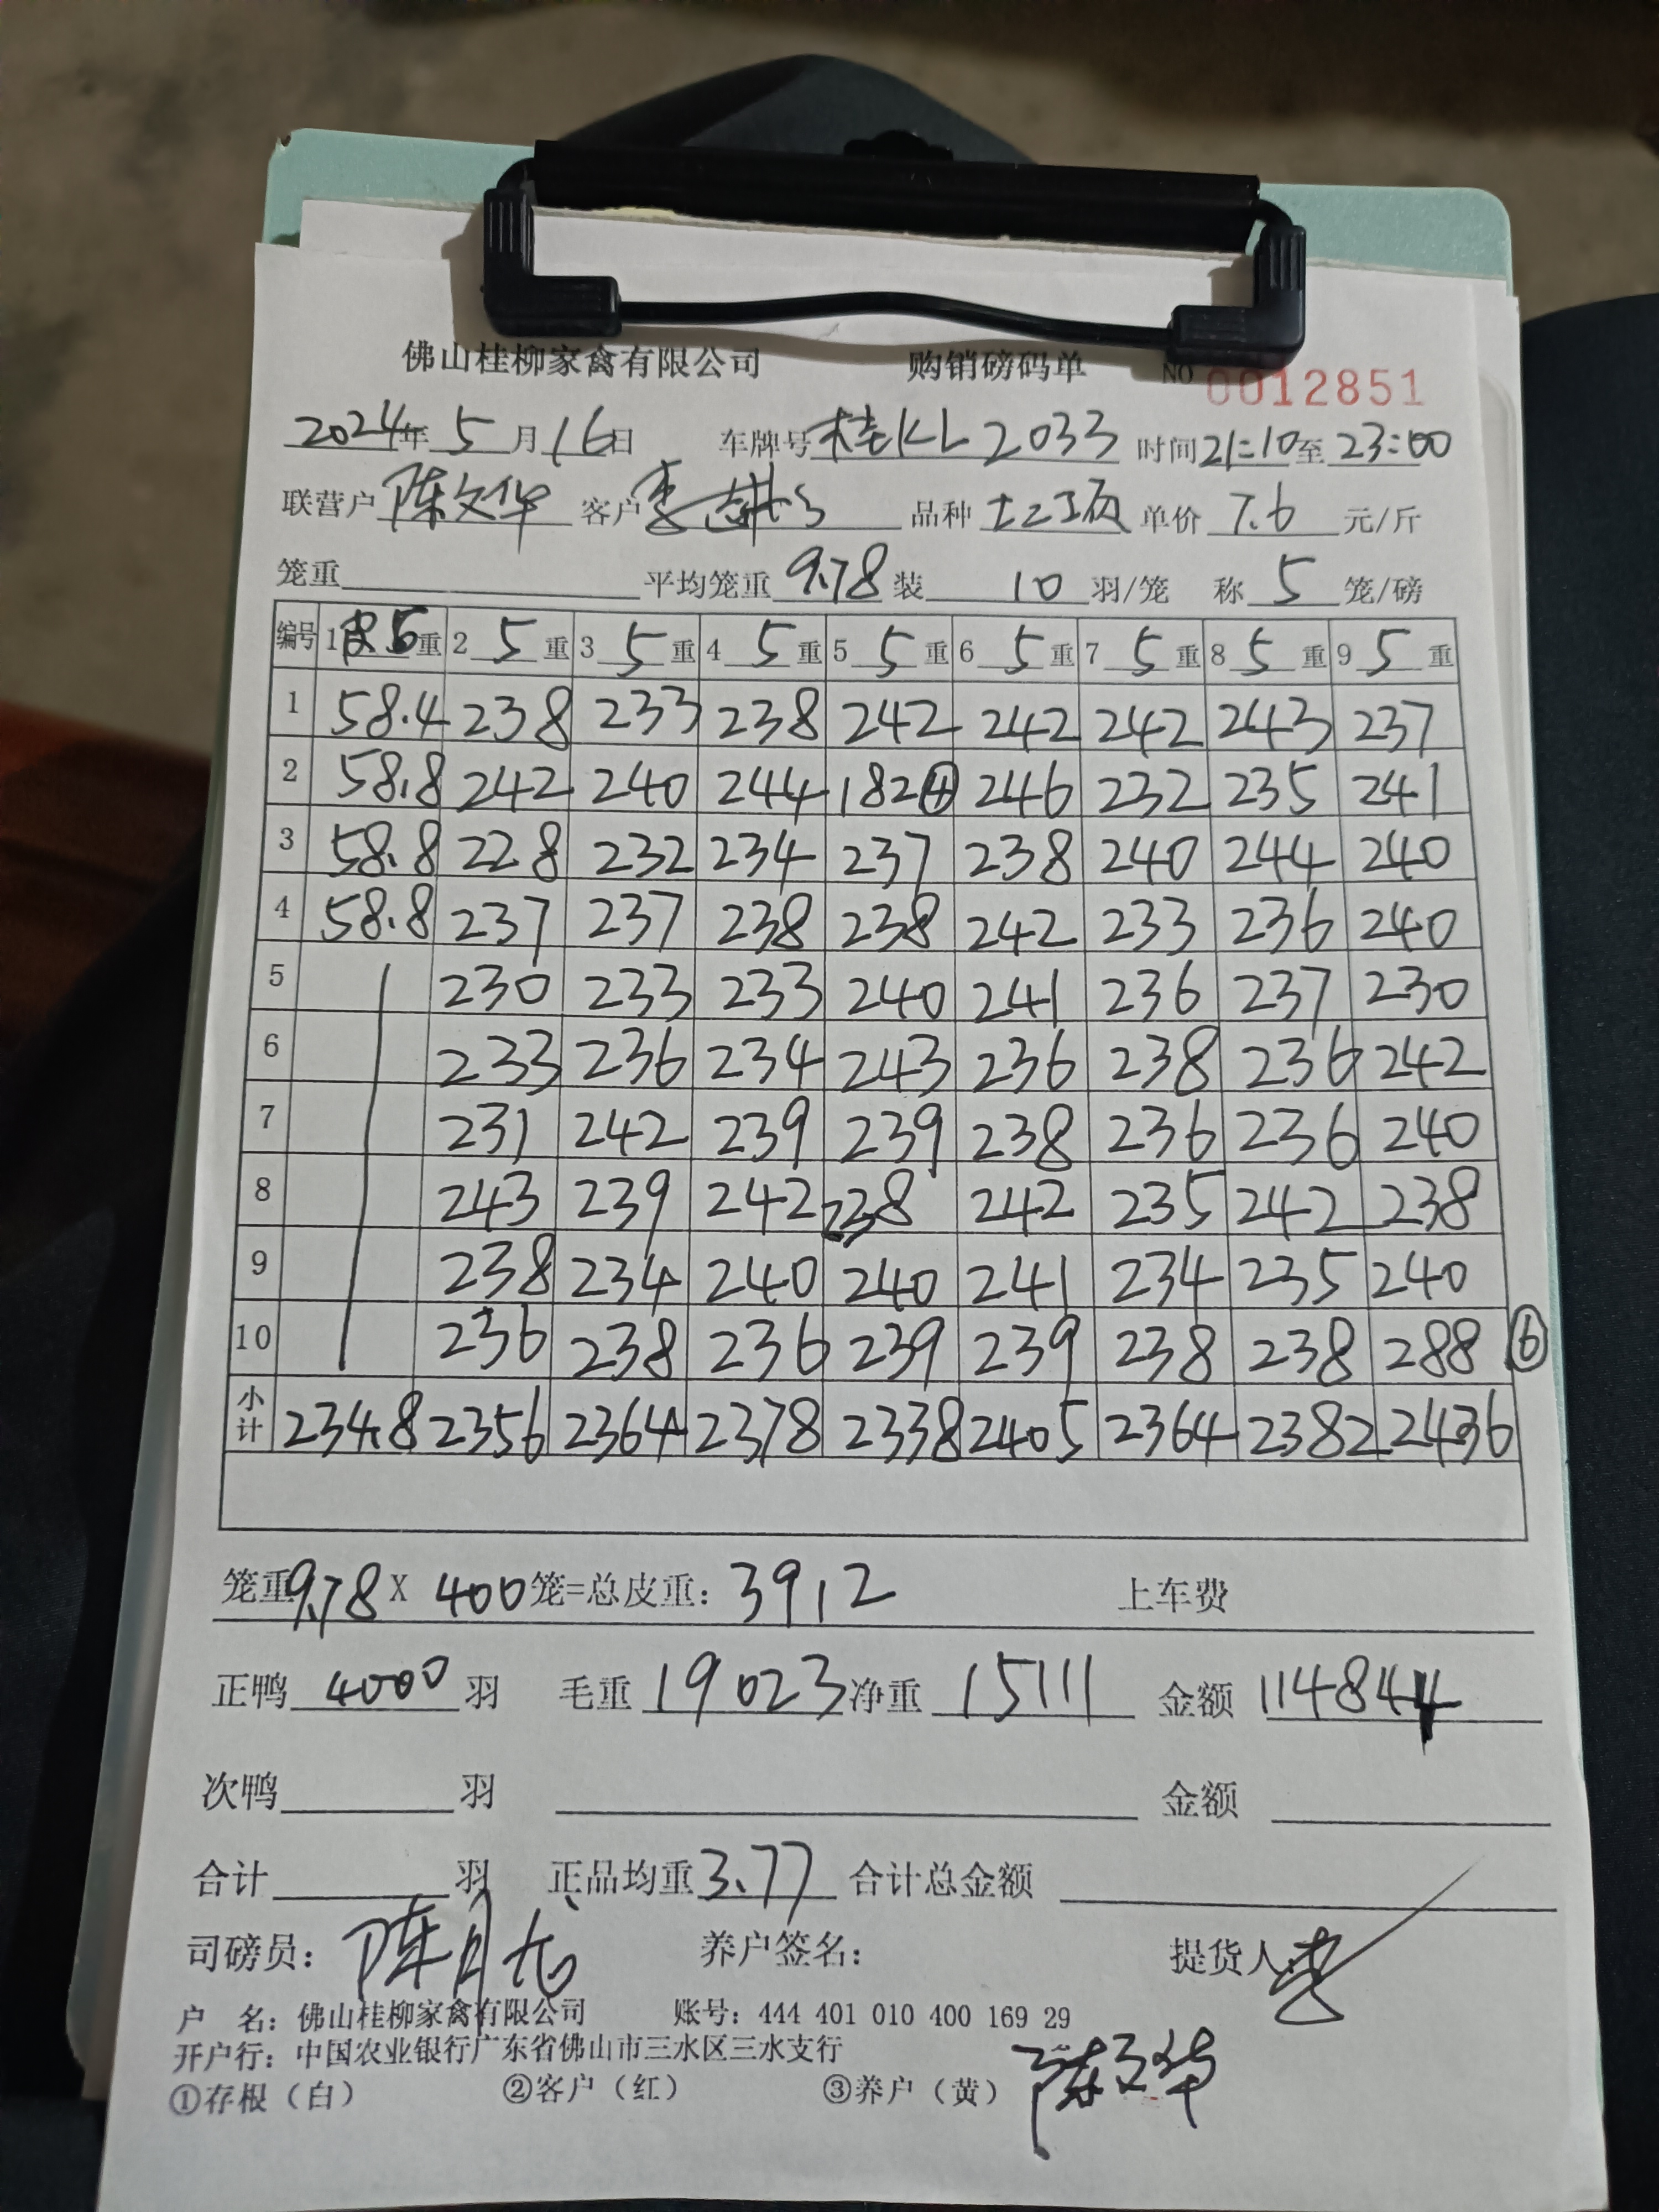 佛山桂柳家禽有限公司 购销磅码单 NO 0012851
2024年 5 月 16日 车牌号 桂KL2033 时间 21:10 至 23:00
联营户 陈文华 客户 李 品种 土2 单价 7.6 元/斤
笼重 平均笼重 9.78 装 10 羽/笼 称 5 笼/磅
编号 1 皮6 重 2 5 重 3 5 重 4 5 重 5 5 重 6 5 重 7 5 重 8 5 重 9 5 重
1 58.4 238 233 238 242 242 242 243 237
2 58.8 242 240 244 182④ 246 232 235 241
3 58.8 228 232 234 237 238 240 244 240
4 58.8 237 237 238 238 242 233 236 240
5 230 233 233 240 241 236 237 230
6 233 236 234 243 236 238 236 242
7 231 242 239 239 238 236 236 240
8 243 239 242 238 242 235 242 238
9 238 234 240 240 241 234 235 240
10 236 238 236 239 239 238 238 288 ⑥
小计 234.8 2356 2364 2378 2338 2405 2364 2382 2436
笼重 9.78 X 400 笼=总皮重: 3912 上车费
正鸭 4000 羽 毛重 19023 净重 15111 金额 114844
次鸭 羽 金额
合计 羽 正品均重 3.77 合计总金额
司磅员: 陈月龙 养户签名: 提货人: 李
户 名: 佛山桂柳家禽有限公司 账号: 444 401 010 400 169 29
开户行: 中国农业银行广东省佛山市三水区三水支行
①存根（白） ②客户（红） ③养户（黄） 陈文华